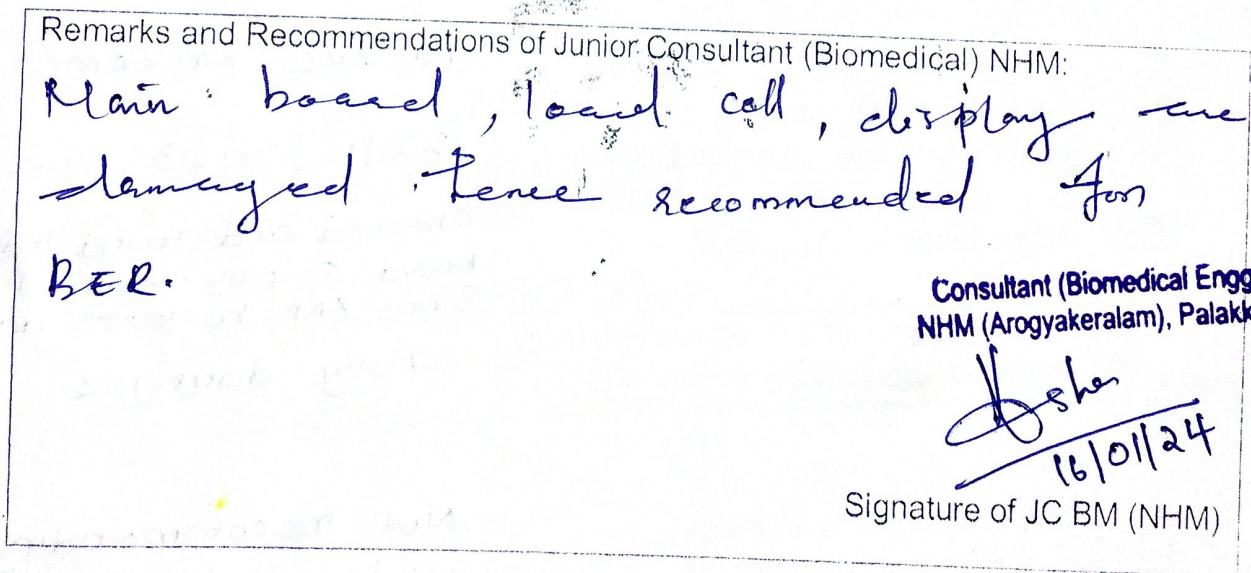 Remarks and Recommendations of Junior Consultant (Biomedical) NHM:
Main board, load cell, display are
damaged. Hence recommended for
BER.
Consultant (Biomedical Engg
NHM (Arogyakeralam), Palakk
16/01/24
Signature of JC BM (NHM)